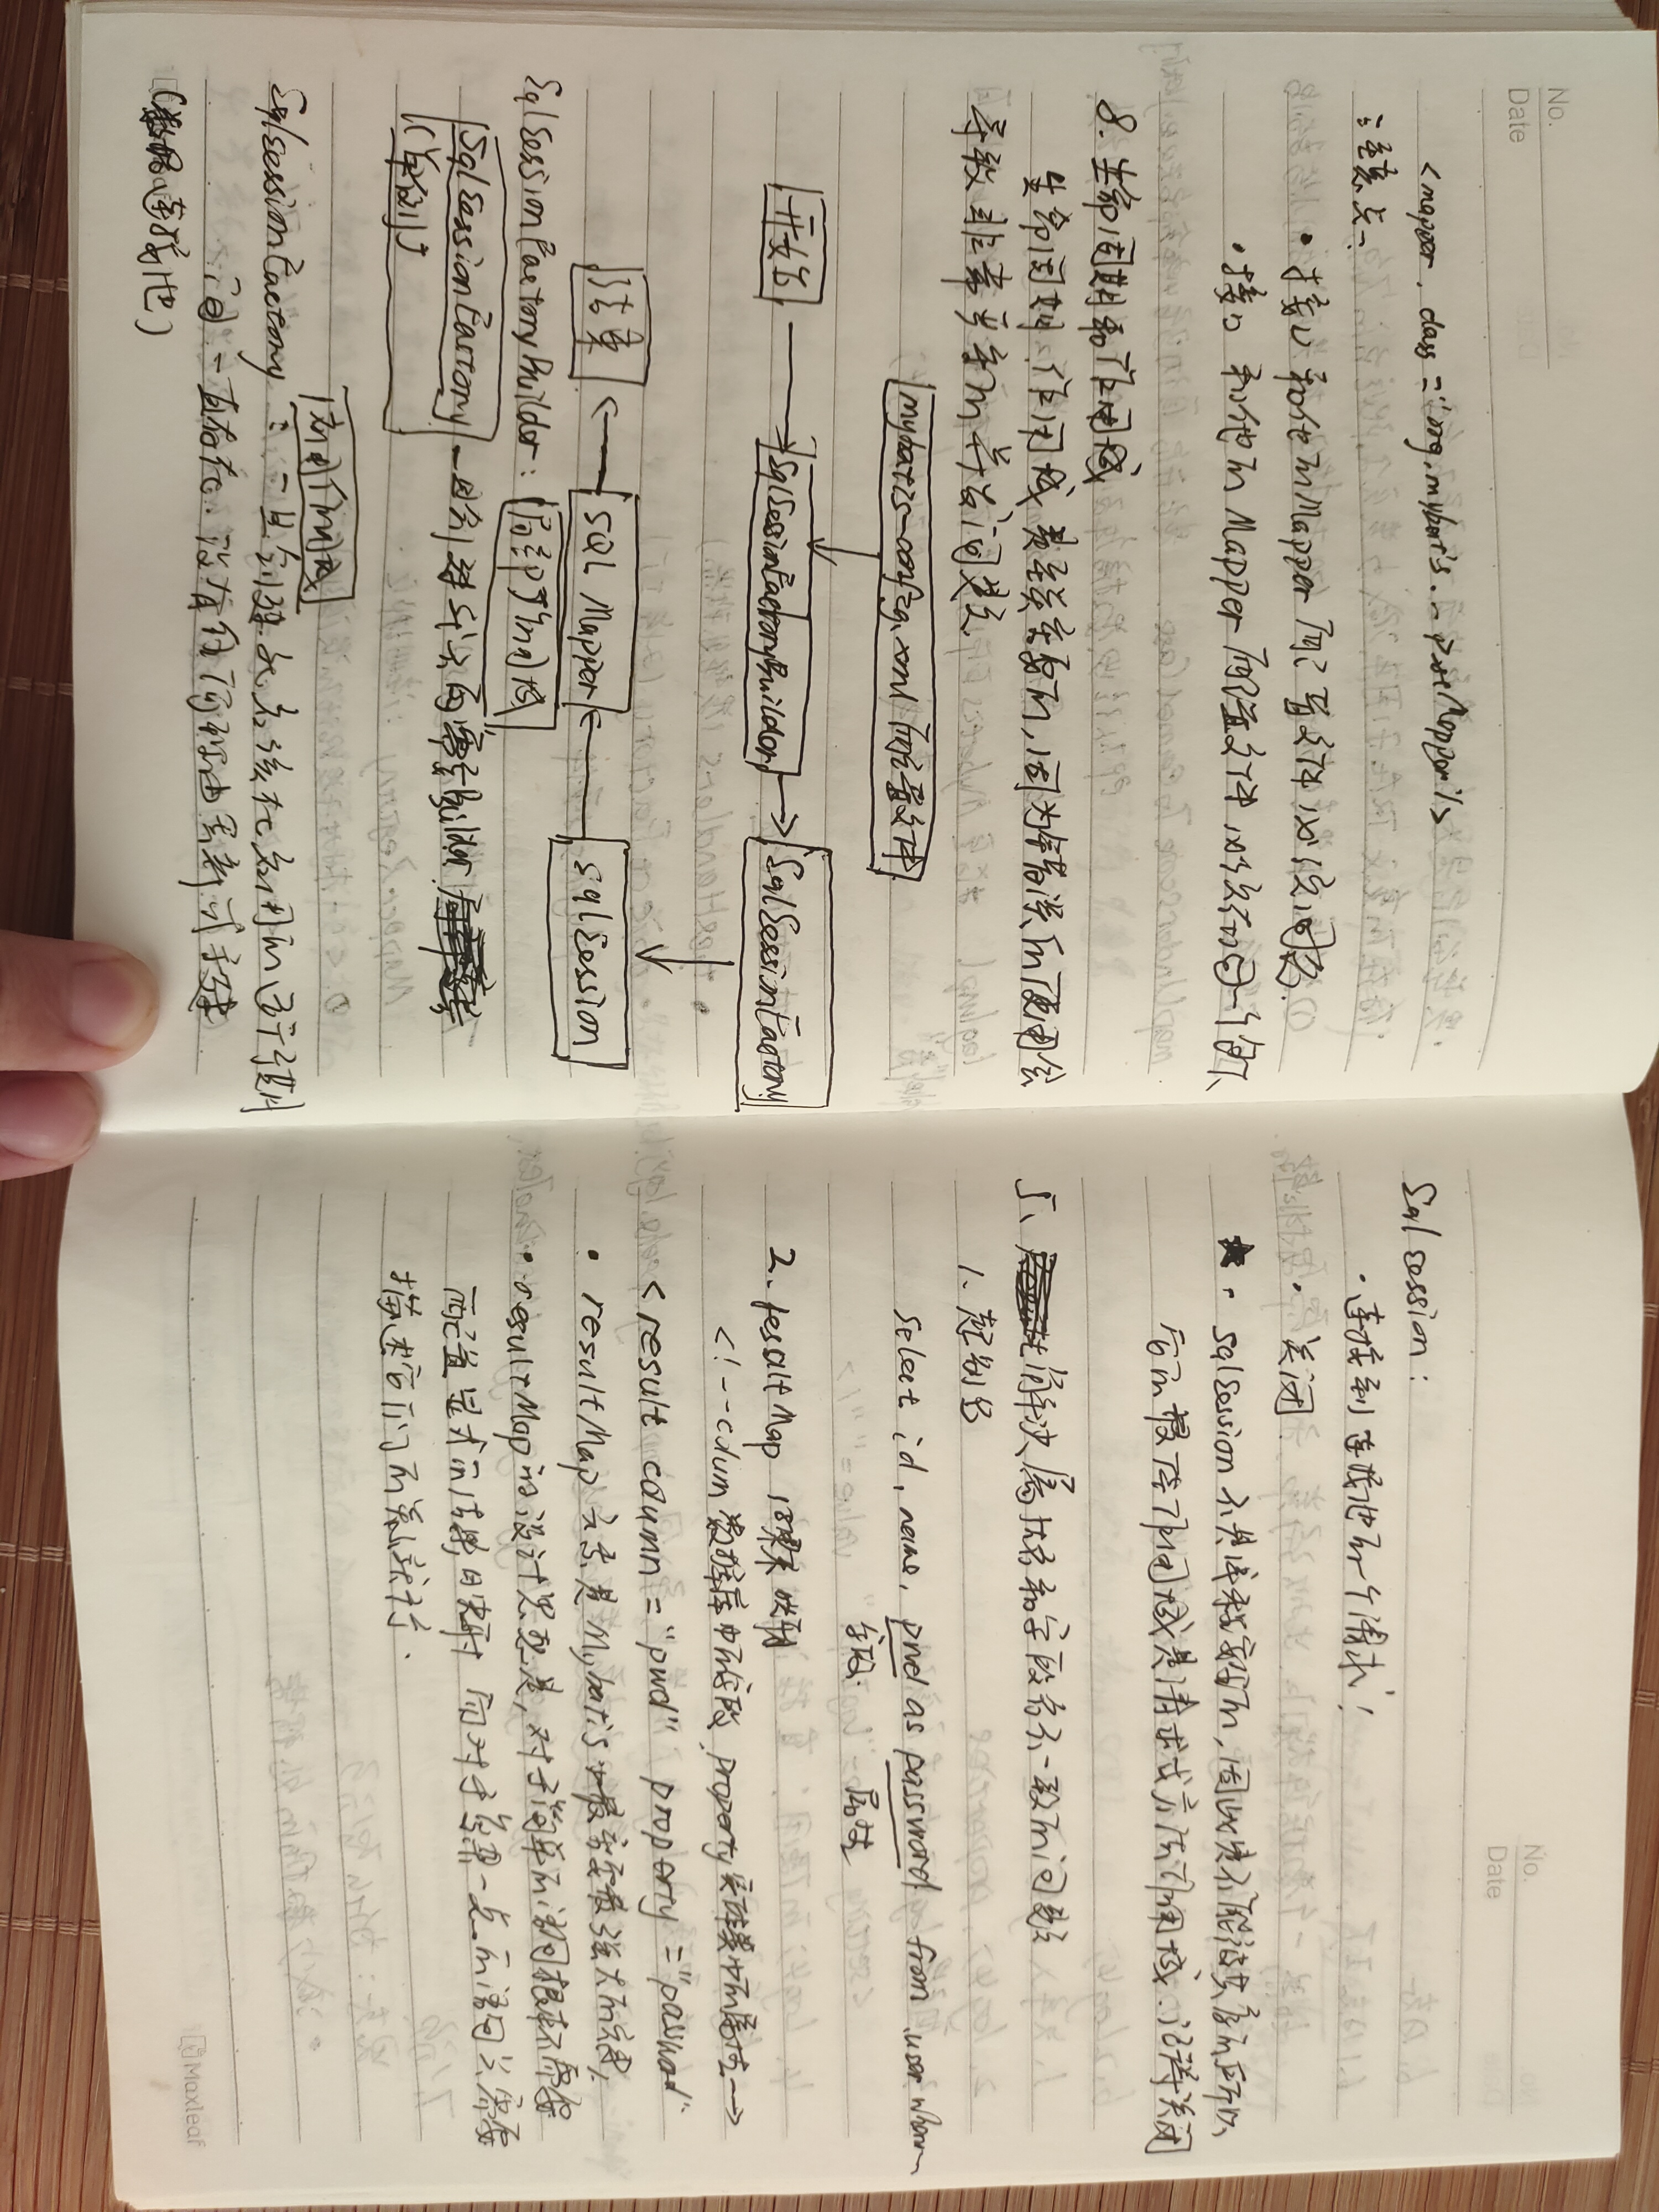 No.
Date
<mapper class="org.mybatis...
注意点：
• 接口和他的Mapper配置文件必须同名.
• 接口和他的Mapper配置文件必须在同一个包下、
8. 生命周期和作用域
生命周期、作用域是至关重要的，因为错误的使用会
导致非常严重的并发问题.
mybatis-config.xml 配置文件
开始
SqlSessionFactoryBuilder
SqlSessionFactory
结果
SQL Mapper
SqlSession
SqlSessionFactoryBuilder: 局部作用域
SqlSessionFactory 一旦创建 不再需要 Builder.
(单例)
应用作用域
SqlSessionFactory: 一旦创建就应该在应用的运行期
间一直存在. 没有任何理由重新
(数据连接池)
No.
Date
Sqlsession:
• 连接到连接池的一个请求!
• 关闭.
★ • sqlSession 不是线程安全的, 因此是不能被共享的, 所以
它的最佳作用域是请求或方法作用域. 关闭
5、解决属性名和字段名不一致的问题
1. 起别名
select id, name, pwd as password from user where
字段. 属性
2. resultMap 结果集映射
<!--colum 数据库中的字段, property 实体类中的属性-->
<result column="pwd" property="password"
• resultMap 元素是 Mybatis 中最重要最强大的元素,
• resultMap 的设计思想是, 对于简单的语句根本不需要
配置显式的结果映射 而对于复杂一点的语句只需要
描述它们的关系就行了.
Maxleaf